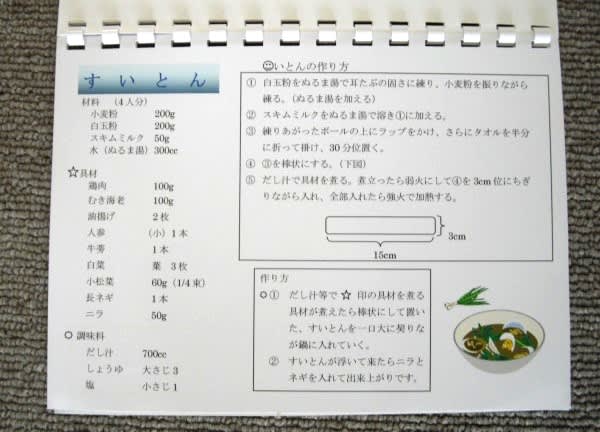 すいとん
材料　（4人分）
小麦粉　200g
白玉粉　200g
スキムミルク　50g
水（ぬるま湯）300cc
☆具材
鶏肉　100g
むき海老　100g
油揚げ　2枚
人参　（小）1本
牛蒡　1本
白菜　葉　3枚
小松菜　60g（1/4束）
長ネギ　1本
ニラ　50g
○ 調味料
だし汁　700cc
しょうゆ　大さじ3
塩　小さじ1
☺いとんの作り方
① 白玉粉をぬるま湯で耳たぶの固さに練り、小麦粉を振りながら
練る。（ぬるま湯を加える）
② スキムミルクをぬるま湯で溶き①に加える。
③ 練りあがったボールの上にラップをかけ、さらにタオルを半分
に折って掛け、30分位置く。
④ ③を棒状にする。（下図）
⑤ だし汁で具材を煮る。煮立ったら弱火にして④を3cm位にちぎ
りながら入れ、全部入れたら強火で加熱する。
3cm
15cm
作り方
○① だし汁等で ☆ 印の具材を煮る
具材が煮えたら棒状にして置い
た、すいとんを一口大に契りな
がら鍋に入れていく。
② すいとんが浮いて来たらニラと
ネギを入れて出来上がりです。